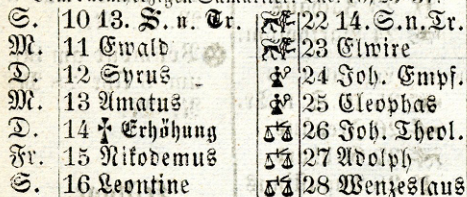 S. 10 13. S. n. Tr. 22 14. S. n. Tr.
M. 11 Ewald 23 Elwire
D. 12 Syrus 24 Joh. Empf.
M. 13 Amatus 25 Cleophas
D. 14 ✝ Erhöhung 26 Joh. Theol.
Fr. 15 Nikodemus 27 Adolph
S. 16 Leontine 28 Wenzeslaus